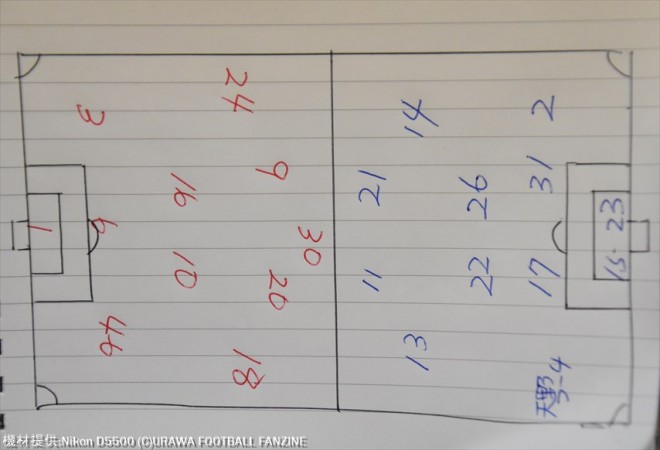 24
3
14
2
9
16
21
26
31
1
6
30
23
10
20
11
22
17
15
46
18
13
天野
4
機材提供:Nikon D5500 (C)URAWA FOOTBALL FANZINE